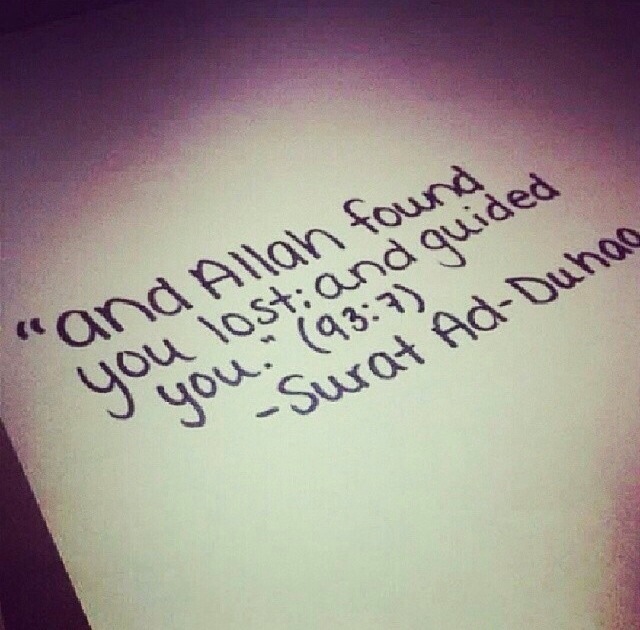 "and Allah found
you lost; and guided
you." (93:7)
-Surat Ad-Duhaa